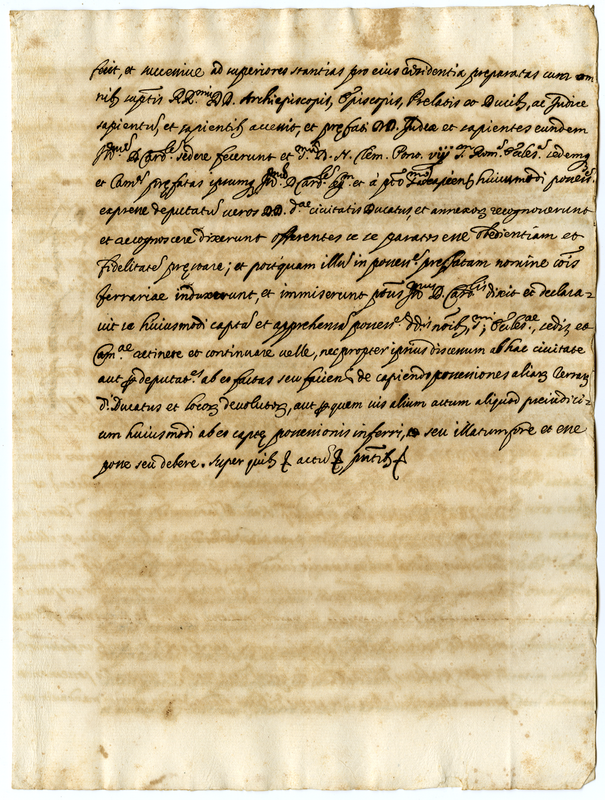 fecit, et successive ad superiores stantias pro eius residentia preparatas cum om
nib. supttis RR.mis DD. Archiepiscopis, Episcopis, Prelatis et Ducib., ac Judice
sapientũ, et sapientib. accessit, et prefati DD. Judex et sapientes eundem
Ill.m D. Card.lem sedere fecerunt et S.mũ D. N. Clem. Papa viij S. Rom.e Eccles.e sedemq
et Cam.m prefatas ipsumq Ill.m D. Card.lem et à pro huiusmodi possess.e
expresse deputatũ veros DD. d.ae civitatis Ducatus et annexorũ recognoverunt
et recognoscere dixerunt offerentes se se paratos esse obedientiam et
fidelitatẽ prestare; et postquam illũ in possess.e prefatam nomine cõis
Ferrariae induxerunt, et immiserunt Ill.mus D. Card.lis dixit et declara-
vit se huiusmodi captã et apprehensã possess.e S. Eccles.ae, sedis et
Cam.ae retinere et continuare velle, nec propter ipsius discessum ab hac civitate
aut deputat.es ab eo factas seu faciend. de capiendo possessiones aliarũ Terrarũ
d.i Ducatus et locorũ devolutorũ, aut quem vis alium actum aliquod preiudici-
um huiusmodi ab eo captę possessionis inferri, seu illatum fore et esse
posse seu debere. Super quib. actũ pñtib.